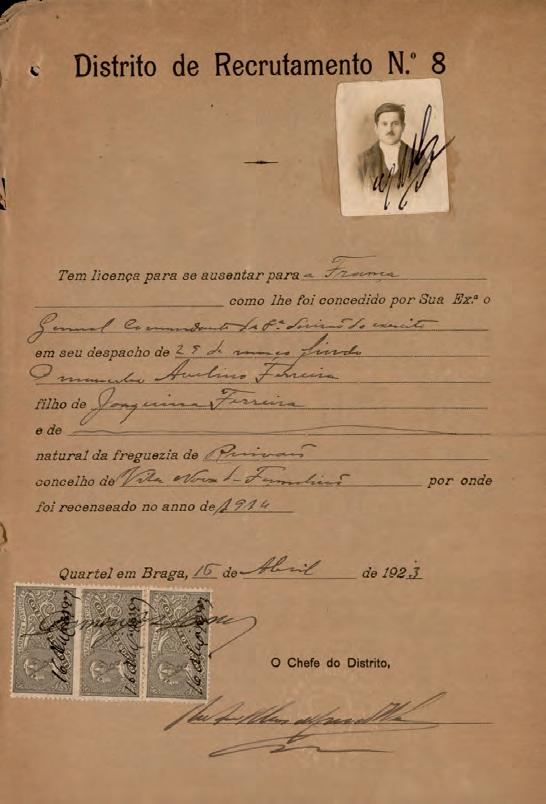 Distrito de Recrutamento N.º 8
Tem licença para se ausentar para a França
como lhe foi concedido por Sua Ex.ª o
General Comandante da 8ª divisão do exercito
em seu despacho de 29 de março findo
O mancebo Avelino Ferreira
filho de Joaquina Ferreira
e de
natural da freguezia de Ruivães
concelho de Vila Nova de Famalicão por onde
foi recenseado no anno de 1914
Quartel em Braga, 16 de Abril de 1923
O Chefe do Distrito,